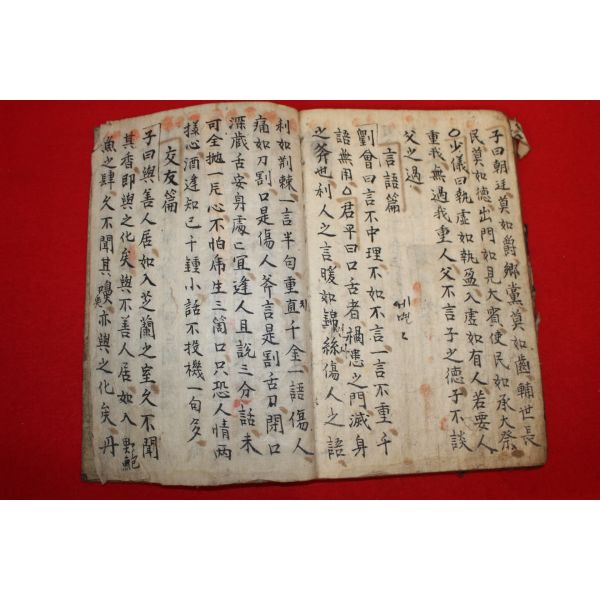 子曰朝廷莫如爵鄕黨莫如齒輔世長
民莫如德出門如見大賓使民如承大祭
○少儀曰執虛如執盈入虛如有人若要人
重我無過我重人父不言子之德子不談
父之過
言語篇
劉會曰言不中理不如不言一言不重千
語無用○君平曰口舌者禍患之門滅身
之斧也利人之言暖如錦絲傷人之語
利如荊棘一言半句重直千金一語傷人
痛如刀割口是傷人斧言是割舌刀閉口
深藏舌安身處〻宜逢人且說三分話未
可全抛一片心不怕虎生三箇口只恐人情兩
樣心酒逢知己千鍾小話不投機一句多
交友篇
子曰與善人居如入芝蘭之室久不聞
其香即與之化矣與不善人居如入鮑
魚之肆久不聞其臭亦與之化矣丹